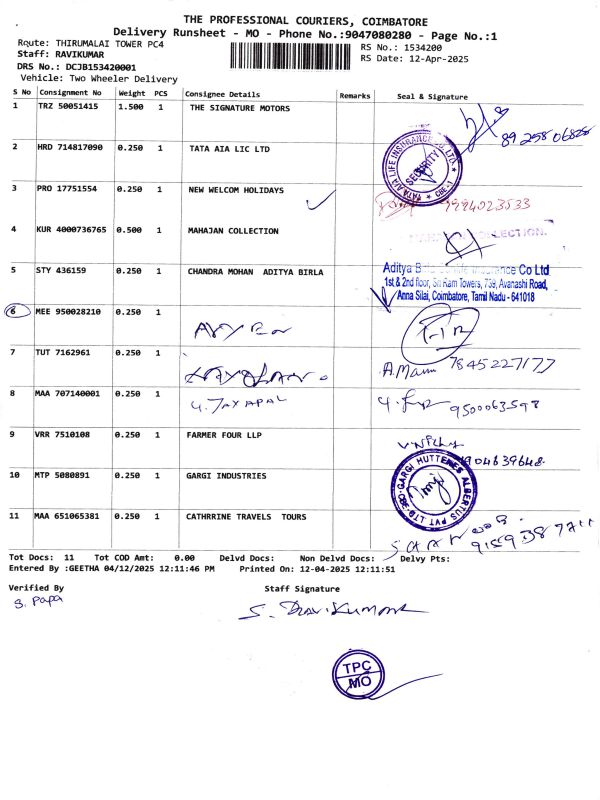 THE PROFESSIONAL COURIERS, COIMBATORE
Delivery Runsheet - MO - Phone No.:9047080280 - Page No.:1
Route: THIRUMALAI TOWER PC4
Staff: RAVIKUMAR
DRS No.: DCJB153420001
Vehicle: Two Wheeler Delivery
RS No.: 1534200
RS Date: 12-Apr-2025
S No Consignment No Weight PCS Consignee Details Remarks Seal & Signature
1 TRZ 50051415 1.500 1 THE SIGNATURE MOTORS
2 HRD 714817090 0.250 1 TATA AIA LIC LTD
TATA AIA LIFE INSURANCE CO. LTD. SECURITY CBE-1
3 PRO 17751554 0.250 1 NEW WELCOM HOLIDAYS 9994023533
4 KUR 4000736765 0.500 1 MAHAJAN COLLECTION COLLECTION.
5 STY 436159 0.250 1 CHANDRA MOHAN ADITYA BIRLA
Aditya Birla Insurance Co Ltd
1st & 2nd floor, Sri Ram Towers, 739, Avanashi Road,
Anna Silai, Coimbatore, Tamil Nadu - 641018
6 MEE 950028210 0.250 1
7 TUT 7162961 0.250 1 A. Mani 7845227177
8 MAA 707140001 0.250 1 G. JAYAPAL 9500063598
9 VRR 7510108 0.250 1 FARMER FOUR LLP
10 MTP 5080891 0.250 1 GARGI INDUSTRIES
GARGI HUTTENES ALBERTUS PVT LTD
11 MAA 651065381 0.250 1 CATHRRINE TRAVELS TOURS
Tot Docs: 11 Tot COD Amt: 0.00 Delvd Docs: Non Delvd Docs: Delvy Pts:
Entered By :GEETHA 04/12/2025 12:11:46 PM Printed On: 12-04-2025 12:11:51
Verified By Staff Signature
S. Papa S. Ravikumar
TPC
MO